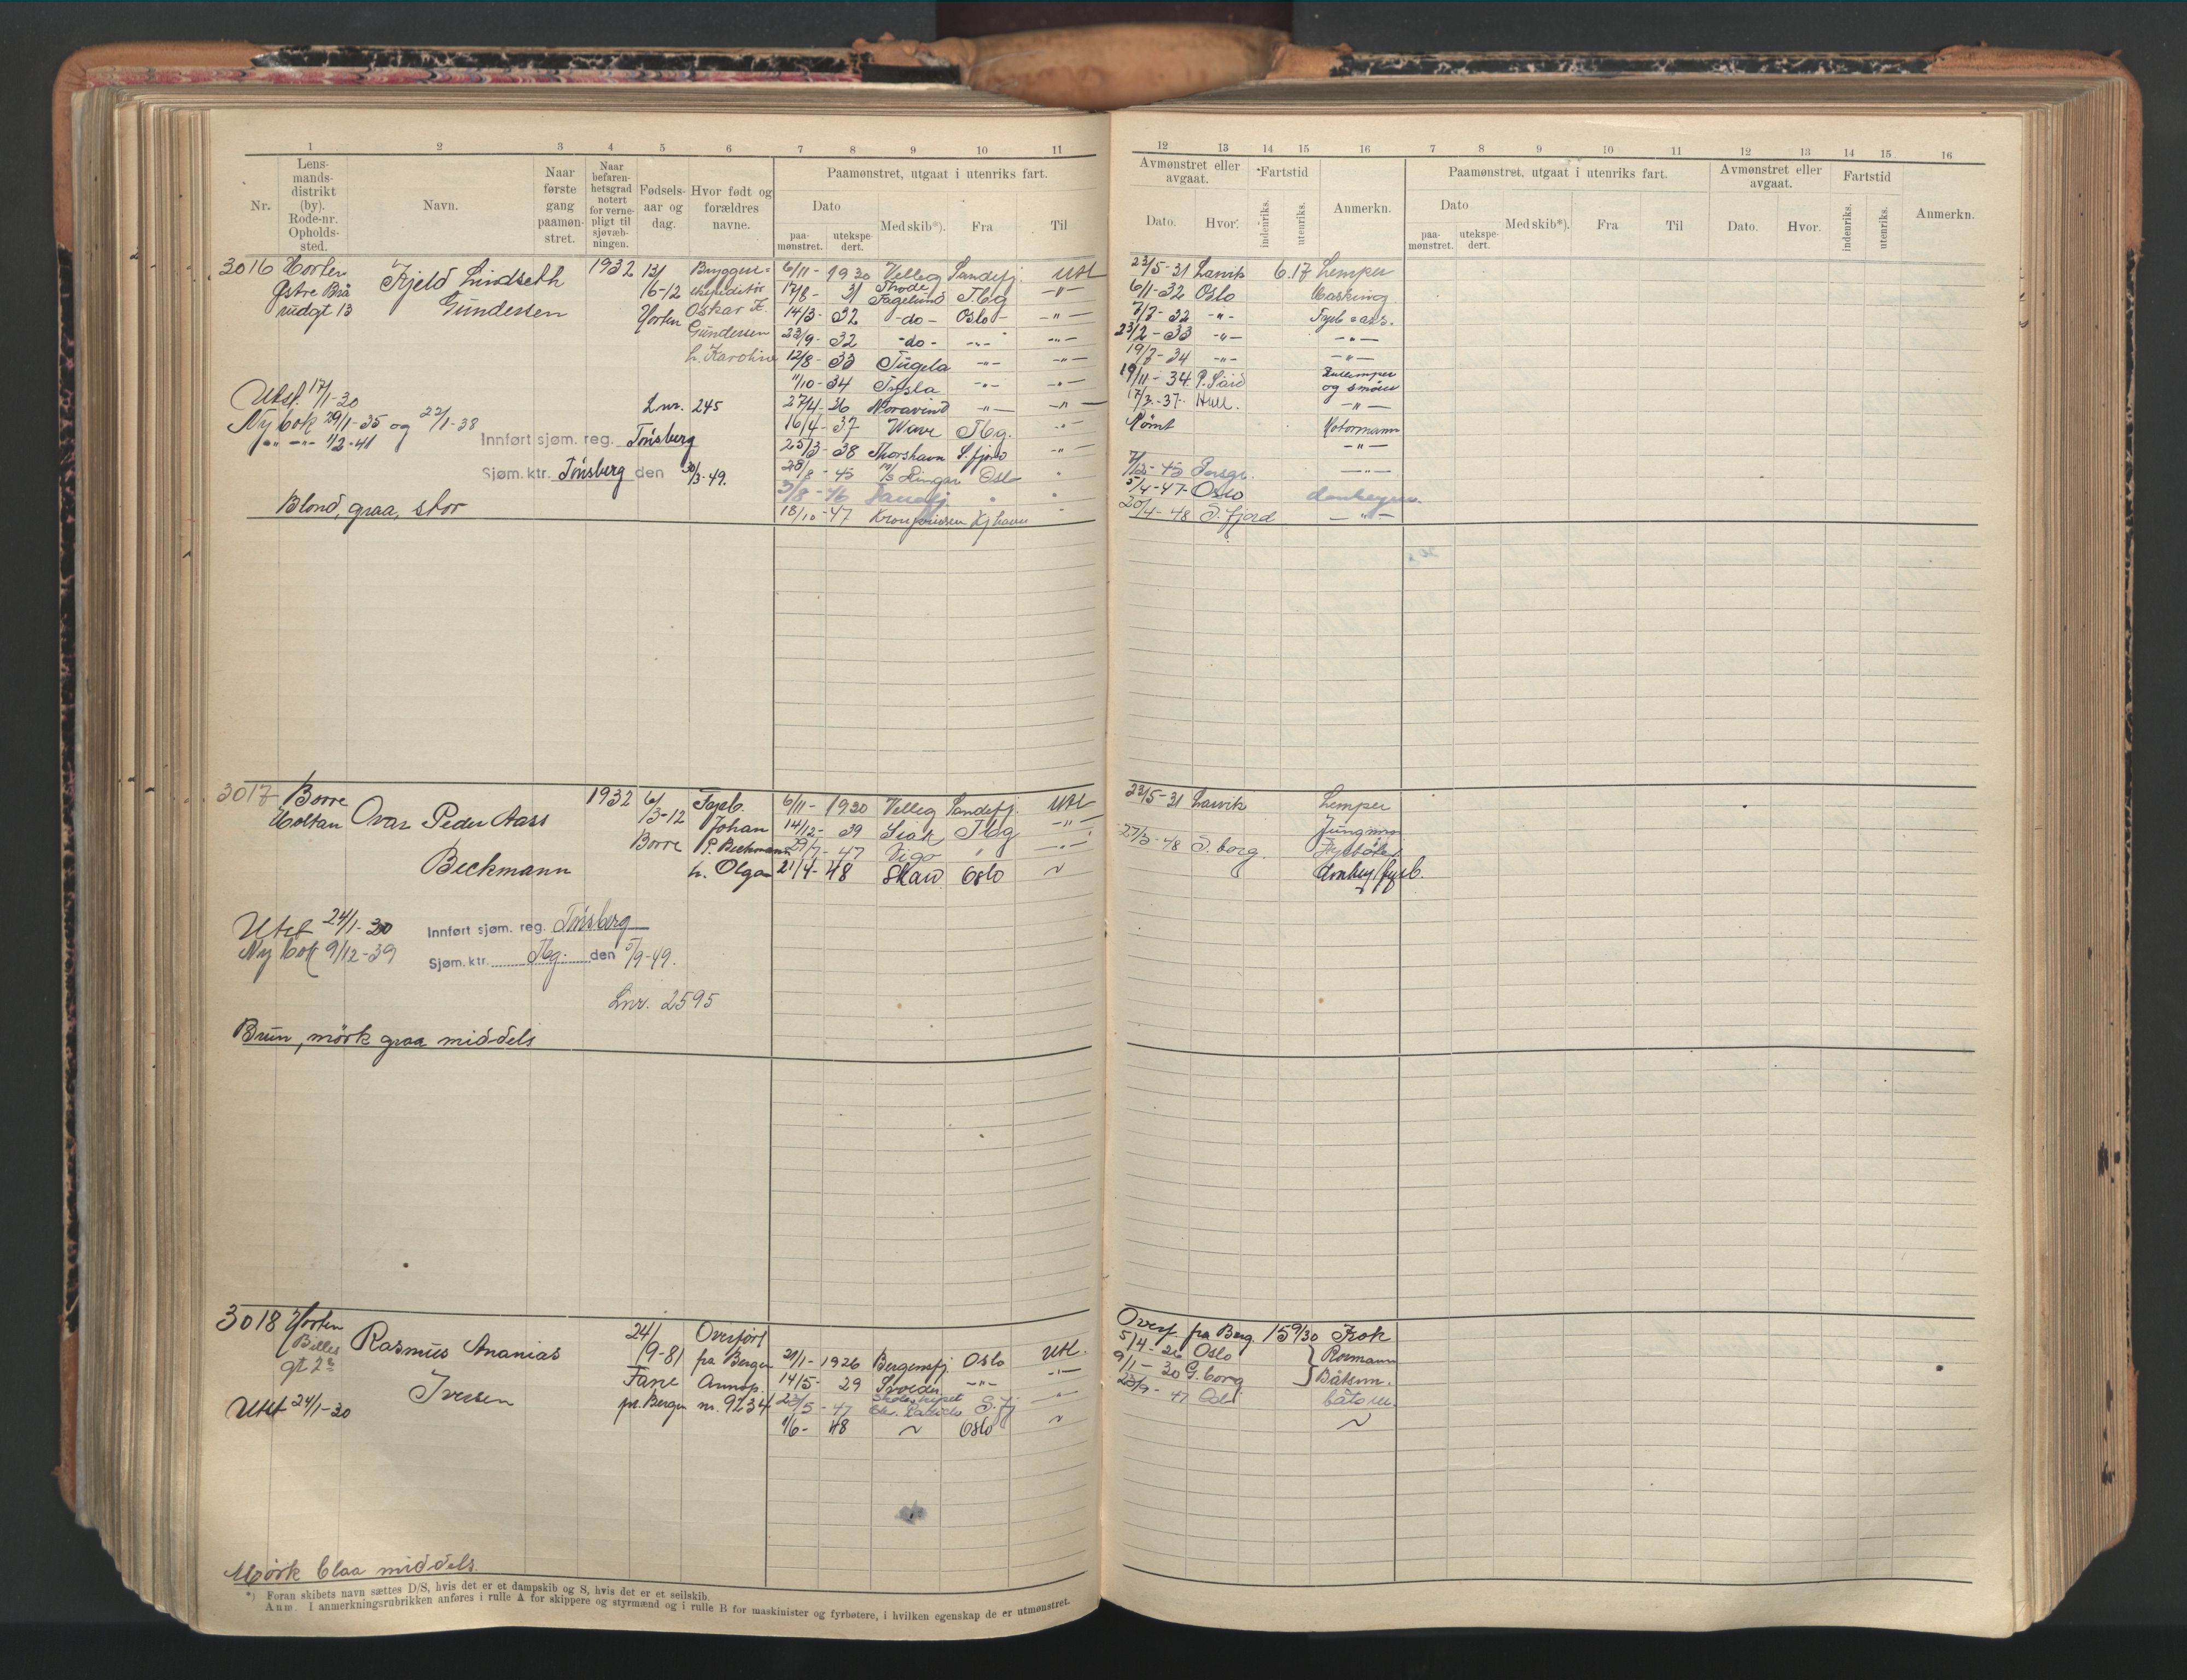 1 2 3 4 5 6 7 8 9 10 11
Nr.
Lens-
mands-
distrikt
(by).
Rode-nr.
Opholds-
sted.
Navn.
Naar
første
gang
paamøn-
stret.
Naar
befaren-
hetsgrad
notert
for verne-
pligt til
sjøvæb-
ningen.
Fødsels-
aar og
dag.
Hvor født og
forældres
navne.
Paamønstret, utgaat i utenriks fart.
Dato
paa-
mønstret.
utekspe-
dert.
Med skib*).
Fra
Til
12 13 14 15 16 7 8 9 10 11 12 13 14 15 16
Avmønstret eller
avgaat.
Dato.
Hvor.
Fartstid
indenriks.
utenriks.
Anmerkn.
Paamønstret, utgaat i utenriks fart.
Dato
paa-
mønstret.
utekspe-
dert.
Med skib*).
Fra
Til
Avmønstret eller
avgaat.
Dato.
Hvor.
Fartstid
indenriks.
utenriks.
Anmerkn.
3016 Horten
Østre Brå
rudgt 13
Kjeld Lindseth
Gundersen
1932
13/
16-12
Horten
Brygge=
expeditør
Oskar K.
Gundersen
h. Karoline
6/11 - 1930 Velleg Sandefj. Utl
17/8 - 31 Thode Fagelund Tbg -"-
14/3 - 32 -do- Oslo -"-
23/9 - 32 -do- -"- -"-
12/8 - 33 Tugela -"- -"-
11/10 - 34 Tysla -"- -"-
27/4 - 36 Noravind -"- -"-
16/4 - 37 Wave Tbg. -"-
25/3 - 38 Thorshavn S.fjord -"-
28/8 - 45 Oslo "
3/8 - 46 "
18/10 - 47 Kronprinsen Kjhavn "
23/5 - 31 Larvik 6.17 Lemper
6/11 - 32 Oslo
7/7 - 32 -"- Fyrb=ass.
23/2 - 33 -"- -"-
19/7 - 34 -"- -"-
19/11 - 34 P. Said
og smører
17/3 - 37 Hull. -"-
Rømt Motormann
-"-
7/12 - 45 -"-
5/4 - 47 - Oslo donkeym.
20/4 - 48 S.fjord - " -
Utst. 17/1-30
Ny bok 29/1-35 og 22/1-38
-"- -"- 1/2-41
Lnr. 245
Innført sjøm. reg. Tønsberg
Sjøm. ktr. Tønsberg den 30/3-49.
Blond, graa, stor
3017 Borre
Holtan
Ovar Peder Aass
Beckmann
1932
6/
3-12
Borre
Fyrb.
Johan
P. Beckmann
h. Olga
6/11 - 1930 Velleg Sandefj. Utl
14/12 - 39 Siak Tbg -"-
29/7 - 47 Vigo " -"-
21/4 - 48 Skaw Oslo ~
23/5 - 31 Larvik Lemper
Jungmann
27/3 - 48 S.borg. Fyrbøter
donkey/fyrb.
Utst 24/1-30
Ny bok 9/12-39
Innført sjøm. reg. Tønsberg
Sjøm. ktr. Tbg. den 5/9-49.
Lnr. 2595
Brun, mørk graa middels
3018 Horten
Billes
gt 2
Rasmus Ananias
Iversen
24/
/9-81
Fane
pr. Bergen
Overført
fra Bergen
Annop.
nr. 9234
21/1 - 1926 Bergensfj. Oslo Utl.
14/5 - 29 -"- -"-
23/5 - 47 Skoleskipet Chr. Radich S.fj "
1/6 - 48 ~ Oslo ~
Overf. fra Berg. 15 9/30 Kok
5/4 - 26 Oslo } Rormann
9/1 - 30 G.borg } Båtsm.
23/9 - 47 Oslo båtsm.
~
Utst 24/1-30
Mørk blaa middels.
*) Foran skibets navn sættes D/S, hvis det er et dampskib og S, hvis det er et seilskib.
Anm. I anmerkningsrubrikken anføres i rulle A for skippere og styrmænd og i rulle B for maskinister og fyrbøtere, i hvilken egenskap de er utmønstret.